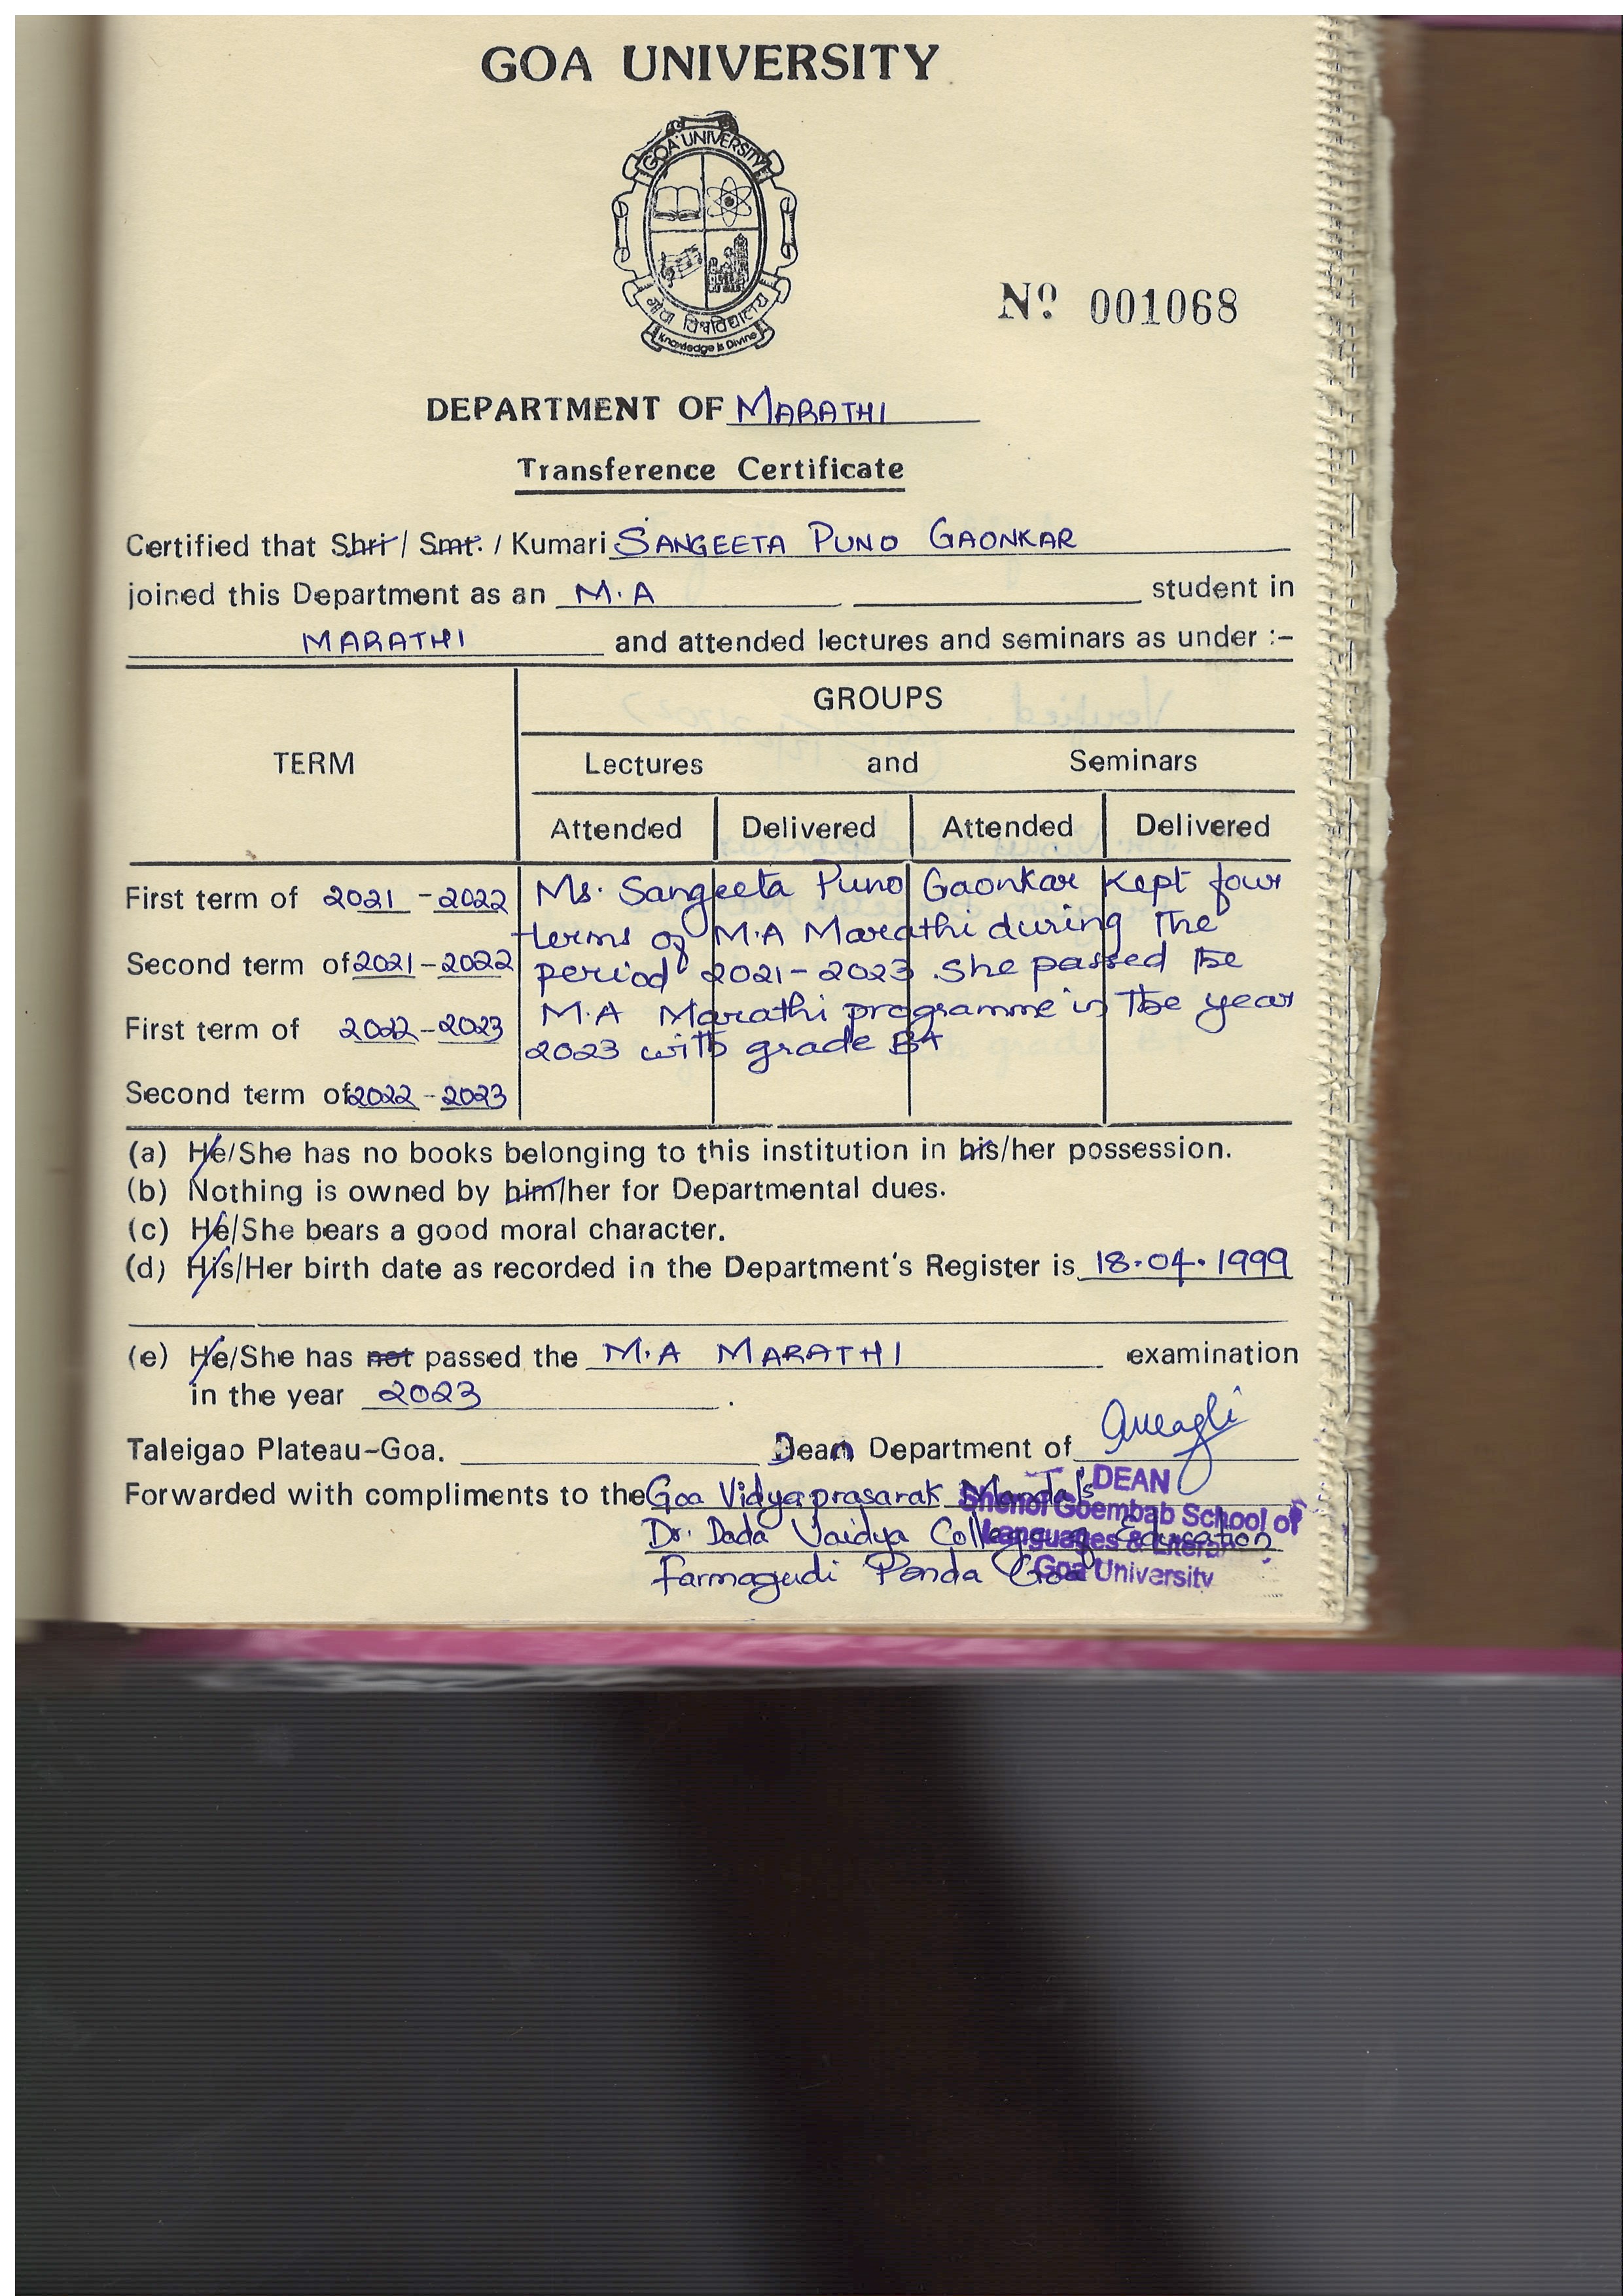 GOA UNIVERSITY
GOA UNIVERSITY
गोंय विश्वविद्यालय
Knowledge is Divine
Nº 001068
DEPARTMENT OF MARATHI
Transference Certificate
Certified that Shri / Smt. / Kumari SANGEETA PUNO GAONKAR
joined this Department as an M.A student in
MARATHI and attended lectures and seminars as under :–
GROUPS
TERM Lectures and Seminars
Attended Delivered Attended Delivered
First term of 2021 - 2022 Ms. Sangeeta Puno Gaonkar kept four
terms of M.A Marathi during the
Second term of 2021 - 2022 period 2021-2023. She passed the
First term of 2022 - 2023 M.A Marathi programme in the year
2023 with grade B+
Second term of 2022 - 2023
(a) He/She has no books belonging to this institution in his/her possession.
(b) Nothing is owned by him/her for Departmental dues.
(c) He/She bears a good moral character.
(d) His/Her birth date as recorded in the Department's Register is 18.04.1999
(e) He/She has not passed the M.A MARATHI examination
in the year 2023 .
Taleigao Plateau–Goa. Dean Department of
DEAN
Forwarded with compliments to the Goa Vidyaprasarak Mandal's
Shenoi Goembab School of
Dr. Dada Vaidya College of Education
Languages &
Farmagudi Ponda Goa
Goa University